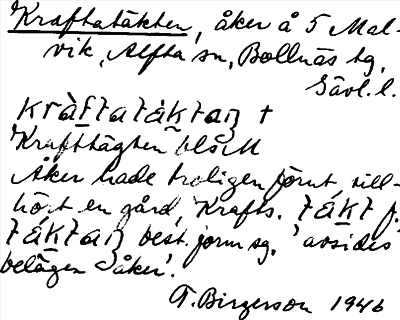 Kraftatäkten, åker å 5 Mal-
vik, Alfta sn, Bollnäs tg,
Gävl. l.
kràftatäktaņ +
Krafttägten blåM
Åker hade troligen förut till-
hört en gård, Krafts. täkt f.
täktaņ best. form sg. 'avsides
belägen åker'.
T. Birgerson 1946